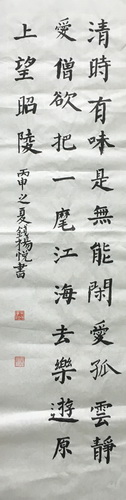 清時有味是無能閑愛孤雲靜
愛僧欲把一麾江海去樂遊原
上望昭陵
丙申之夏錢楊悅書